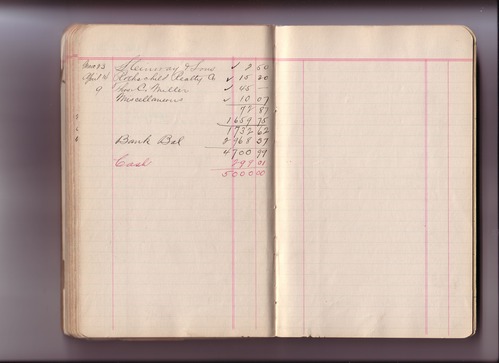 Mar 23 Steinway & Sons ✓ 2 50
April 4 Rothschild Realty Co ✓ 15
9 C. Miller ✓ 45 —
Miscellaneous ✓ 10 07
72 87
1659 75
1732 62
Bank Bal 2968 37
4700 99
Cash 299 01
5000 00